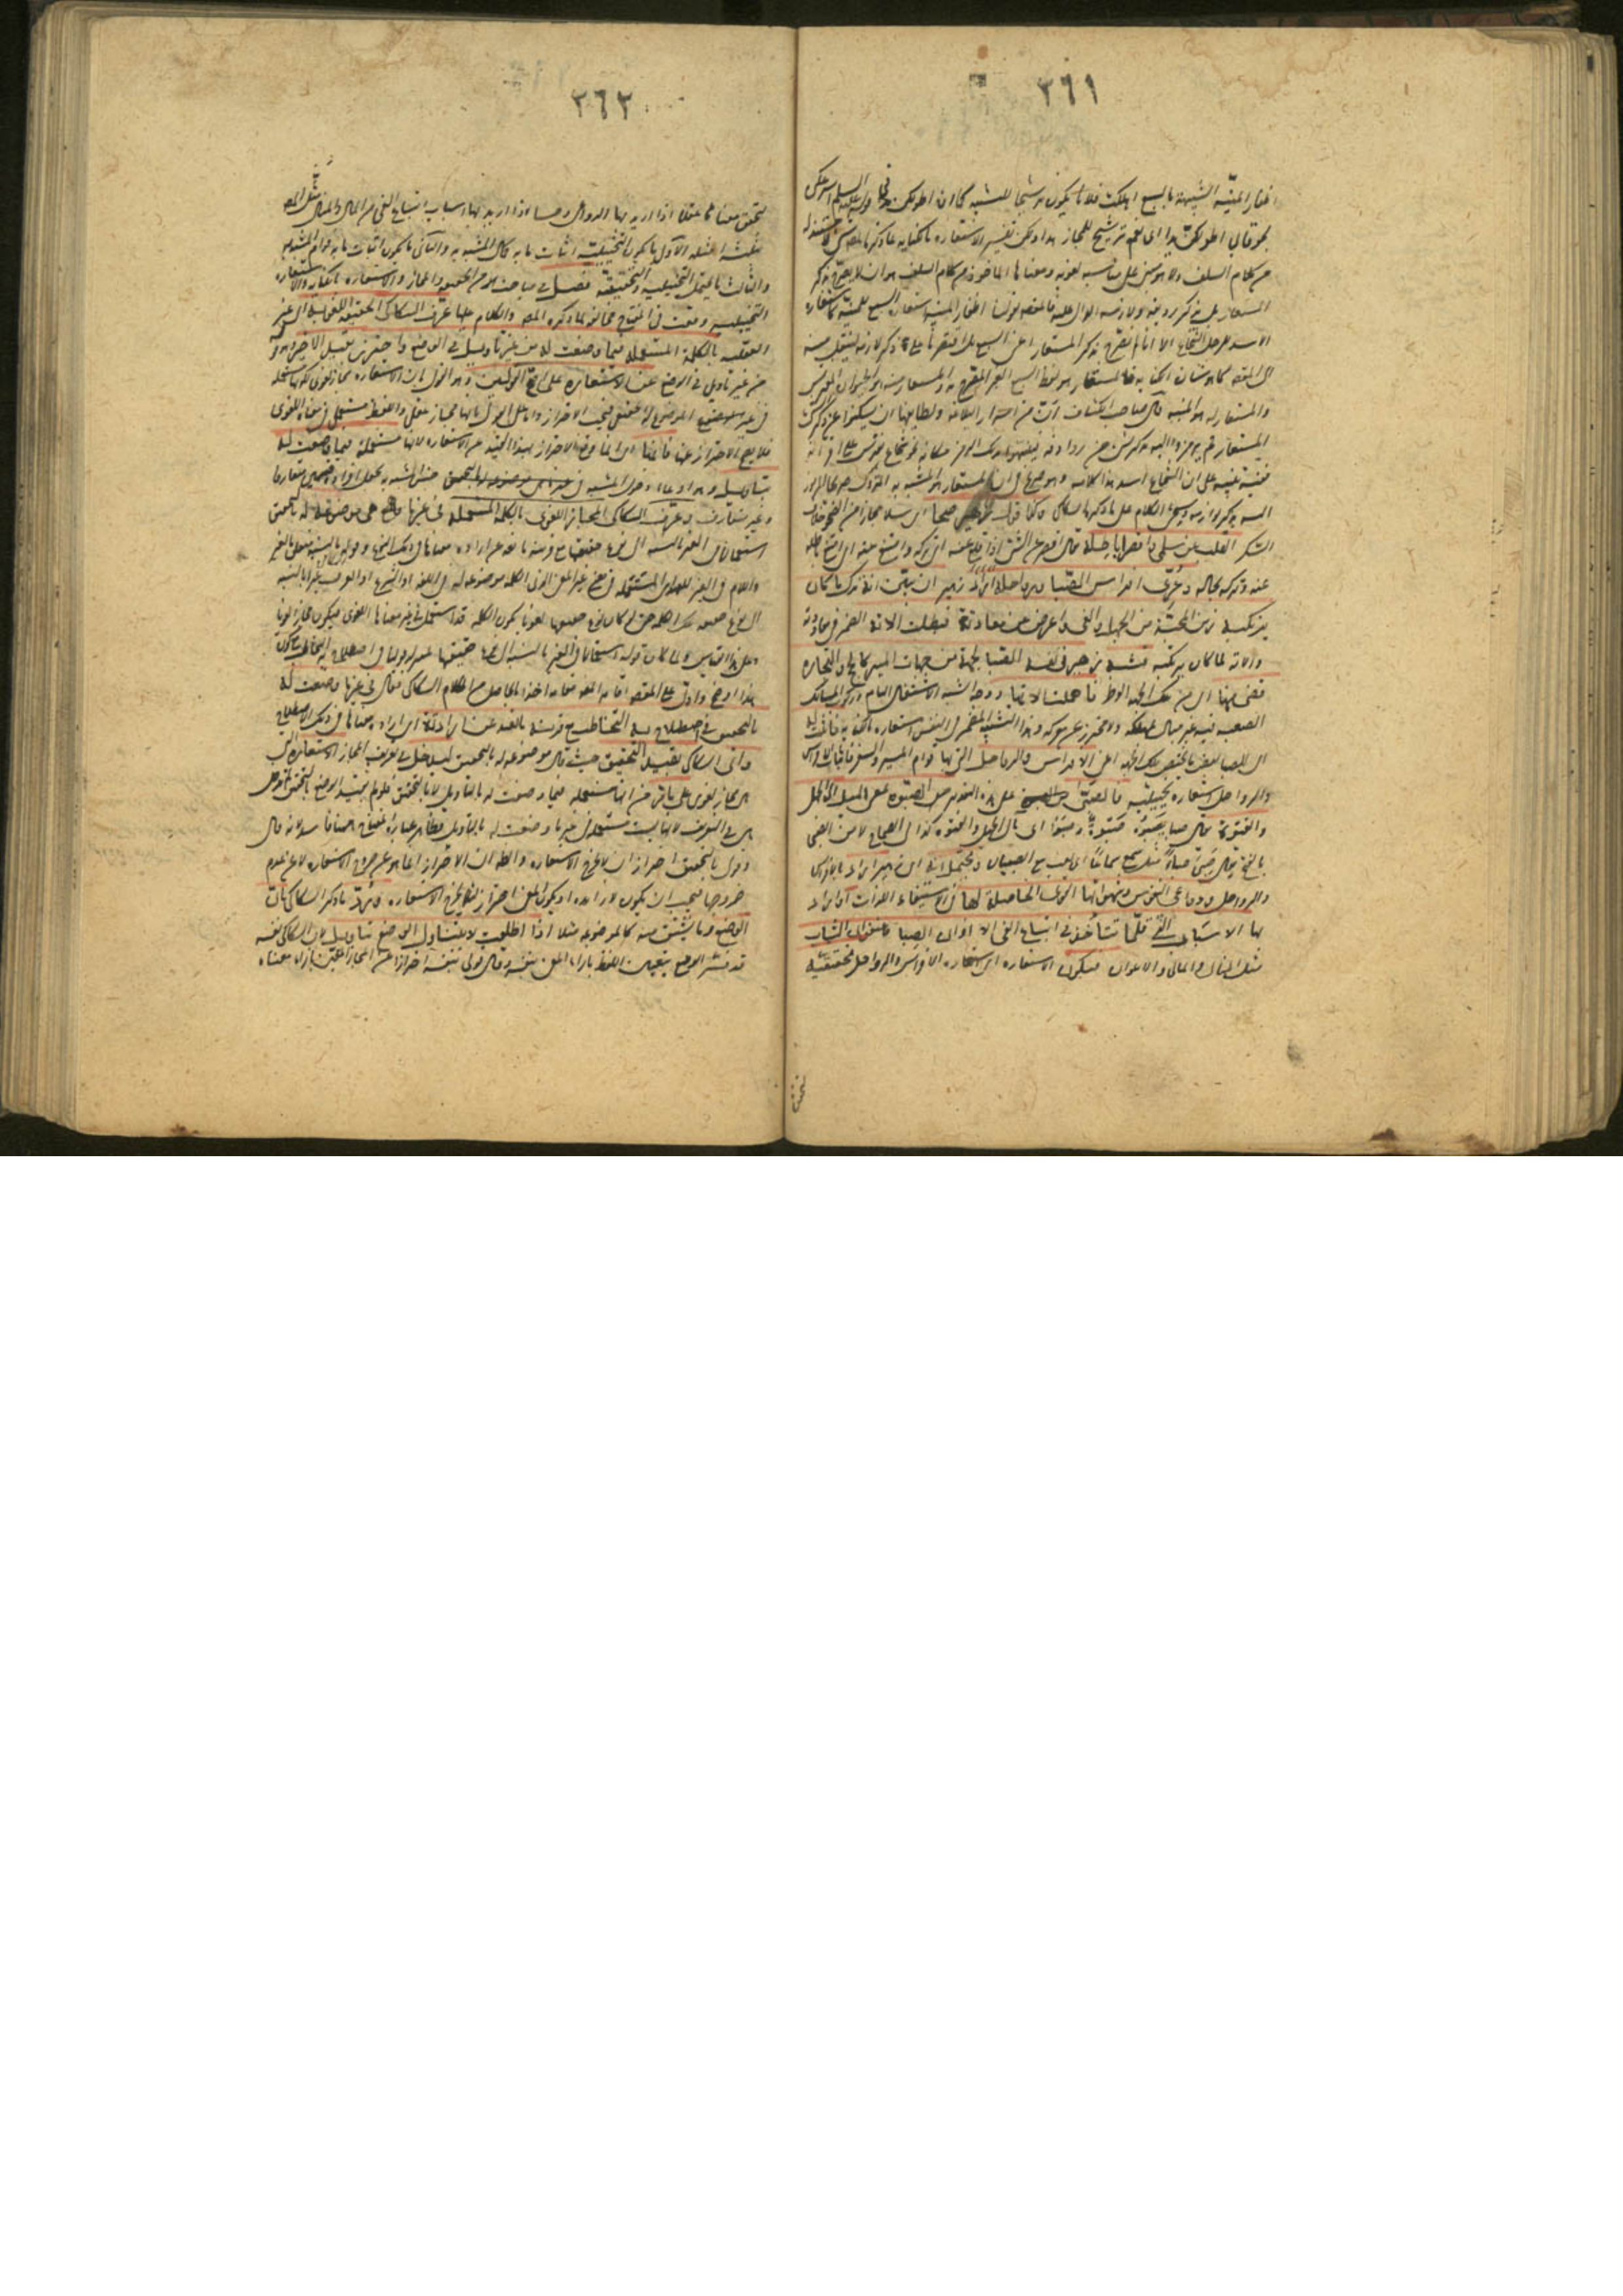 ٣٦١
اظفار المنية الشبيهة بالسبع اهلكت فلانا يكون ترشيحا للتشبيه كما ان اطولكن في قوله عليه السلم اسرعكن
لحوقا بي اطولكن يدا اى نعمة ترشيح للمجاز هذا ولكن تفسير الاستعارة بالكناية بما ذكره المص شئ لا مستند له
فى كلام السلف ولا هو مبنى على مناسبة لغوية ومعناها الماخوذ من كلام السلف هو ان لا يصرح بذكر
المستعار بل بذكر رديفه ولازمه الدال عليه فالمقصود بقولنا اظفار المنية استعارة السبع للمنية كاستعارة
الاسد للرجل الشجاع الا انا لم نصرح بذكر المستعار اعنى السبع بل اقتصرنا على ذكر لازمه لينتقل منه
الى المقصود كما هو شان الكناية فالمستعار هو لفظ السبع الغير المصرح به والمستعار منه هو الحيوان المفترس
والمستعار له هو المنية قال صاحب الكشاف ان من اسرار البلاغة ولطائفها ان يسكتوا عن ذكر الشئ
المستعار ثم يرمزوا اليه بذكر شئ من روادفه فينبهوا بذلك الرمز على مكانه نحو شجاع يفترس اقرانه
ففيه تنبيه على ان الشجاع اسد هذا كلامه وهو صريح فى ان المستعار هو اسم المشبه به المتروك صريحا المرموز
اليه بذكر لوازمه وسيجئ الكلام على ما ذكره السكاكى وكذا قول زهير صحا اى سلا مجازا من الصحو خلاف
السكر القلب عن سلمى واقصر باطله يقال اقصر عن الشئ اذا اقلع عنه اى تركه وامتنع عنه اى امتنع باطله
عنه وتركه بحاله وعرى افراس الصبا ورواحله اراد زهير ان يبين انه ترك ما كان
يرتكبه زمن المحبة من الجهل والغى واعرض عن معاودته فبطلت الاته الضمير فى معاودته
والاته لما كان يرتكبه فشبه زهير فى نفسه الصبا بجهة من جهات المسير كالحج والتجارة
قضى منها اى من تلك الجهة الوطر فاهملت الاتها ووجه الشبه الاشتغال التام وركوب المسالك
الصعبة فيه غير مبال بمهلكة ولا محترز عن معركة وهذا التشبيه المضمر فى النفس استعارة بالكناية فاثبت له
اى للصبا بعض ما يختص تلك الجهة اعنى الافراس والرواحل التى بها قوام المسير والسفر فاثبات الافراس
والرواحل استعارة تخييلية فالصبا على هذا التقدير من الصبوة بمعنى الميل الى الجهل
والفتوة يقال صبا يصبو صبوة وصبوا اى مال الى الجهل والفتوة كذا فى الصحاح لا من الصبى
بالفتح يقال صبى صباء مثل سمع سماعا اى لعب مع الصبيان ويحتمل انه اى زهير اراد بالافراس
والرواحل دواعى النفوس وشهواتها والقوى الحاصلة لها فى استيفاء اللذات او اراد
بها الاسباب التى قلما تتأخذ فى اتباع الغى الا اوان الصبا وعنفوان الشباب
مثل المنال والمال والاعوان فيكون الاستعارة اى استعارة الافراس والرواحل تحقيقية
لتحقق
٣٦٢
لتحقق معناها عقلا اذا اريد بها الدواعى وحسا اذا اريد بها اسباب اتباع الغى من المال والمنال مثل المص
بثلثة امثلة الاول ما يكون التخييلية اثبات ما به كمال المشبه به والثانى ما يكون اثبات ما به قوام المشبه به
والثالث ما يحتمل التخييلية والتحقيقية فصل فى مباحث من الحقيقة والمجاز والاستعارة بالكناية والاستعارة
التخييلية وقعت فى المفتاح مخالفة لما ذكره المص والكلام عليها عرف السكاكى الحقيقة اللغوية اى غير
العقلية بالكلمة المستعملة فيما وضعت له من غير تاويل فى الوضع واحترز بالقيد الاخير وهو
من غير تاويل فى الوضع عن الاستعارة على اصح القولين وهو القول بان الاستعارة مجاز لغوى لكونها مستعملة
فى غير الموضوع له الحقيقى فيجب الاحتراز عنها واما على القول بانها مجاز عقلى واللفظ مستعمل فى معناه اللغوى
فلا يصح الاحتراز عنها فانها اى انما وقع الاحتراز بهذا القيد عن الاستعارة لانها مستعملة فيما وضعت له
بتاويل وهو ادعاء دخول المشبه فى جنس المشبه به بجعل افراده قسمين متعارفا
وغير متعارف وعرف السكاكى المجاز اللغوى بالكلمة المستعملة فى غير ما هى موضوعة له بالتحقيق
استعمالا فى الغير بالنسبة الى نوع حقيقتها مع قرينة مانعة عن ارادة معناها فى ذلك النوع وقوله بالنسبة متعلق بالغير
واللام فى الغير للعهد اى المستعملة فى معنى غير المعنى الذى الكلمة موضوعة له فى اللغة او الشرع او العرف غيرا بالنسبة
الى نوع حقيقة تلك الكلمة حتى لو كان نوع حقيقتها لغويا يكون الكلمة قد استعملت فى غير معناها اللغوى فيكون مجازا لغويا
وعلى هذا القياس ولما كان قوله استعمالا فى الغير بالنسبة الى نوع حقيقتها بمنزلة قولنا فى اصطلاح به التخاطب مع كون
هذا اوضح وادل على المقصود اقامه المص مقامه اخذا بالحاصل من كلام السكاكى فقال فى غير ما وضعت له
بالتحقيق فى اصطلاح به التخاطب مع قرينة مانعة عن ارادته اى ارادة معناها فى ذلك الاصطلاح
واتى السكاكى بقيد التحقيق حيث قال موضوعة له بالتحقيق ليدخل فى تعريف المجاز الاستعارة التى
هى مجاز لغوى على ما مر من انها مستعملة فيما وضعت له بالتاويل لا بالتحقيق فلو لم يقيد الوضع بالتحقيق لم تدخل
هى فى التعريف لانها ليست مستعملة فى غير ما وضعت له بالتاويل فظاهر عبارة المفتاح ههنا فاسد لانه قال
وقولى بالتحقيق احتراز ان لا تخرج الاستعارة وظاهر ان الاحتراز انما هو عن خروج الاستعارة لا عن عدم
خروجها فيجب ان يكون لا زائدة او يكون المعنى احترازا لئلا يخرج الاستعارة ورد ما ذكره السكاكى بان
الوضع وما يشتق منه كالموضوعة مثلا اذا اطلقت لا يتناول الوضع بتاويل لان السكاكى نفسه
قد فسر الوضع بتعيين اللفظ بازاء المعنى بنفسه وقال وقولى بنفسه احتراز عن المجاز المعين بازاء معناه